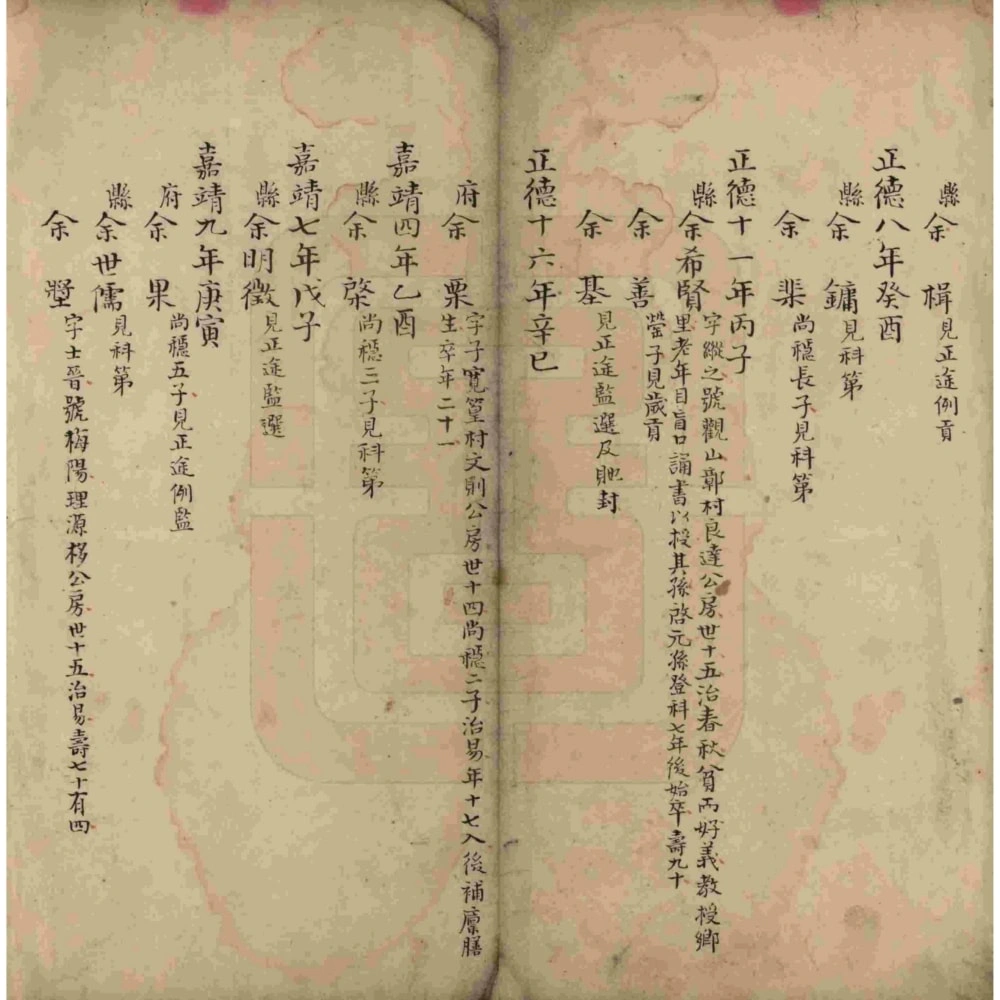 縣余 楫見正途例貢
正德八年癸酉
縣余 鏞見科第
余 棐尚穩長子見科第
正德十一年丙子
縣余希賢字縱之號觀山鄣村良達公房世十五治春秋貧而好義教授鄉
里老年目盲口誦書以授其孫啓元孫登科七年後始卒壽九十
余 善瑩子見歲貢
余 基見正途監選及貤封
正德十六年辛巳
府余 栗字子寬篁村文則公房世十四尚穩二子治易年十七入後補廩膳
生卒年二十一
嘉靖四年乙酉
縣余 棨尚穩三子見科第
嘉靖七年戊子
縣余明徵見正途監選
嘉靖九年庚寅
府余 果尚穩五子見正途例監
縣余世儒見科第
余 壁字士晉號梅陽理源移公房世十五治易壽七十有四